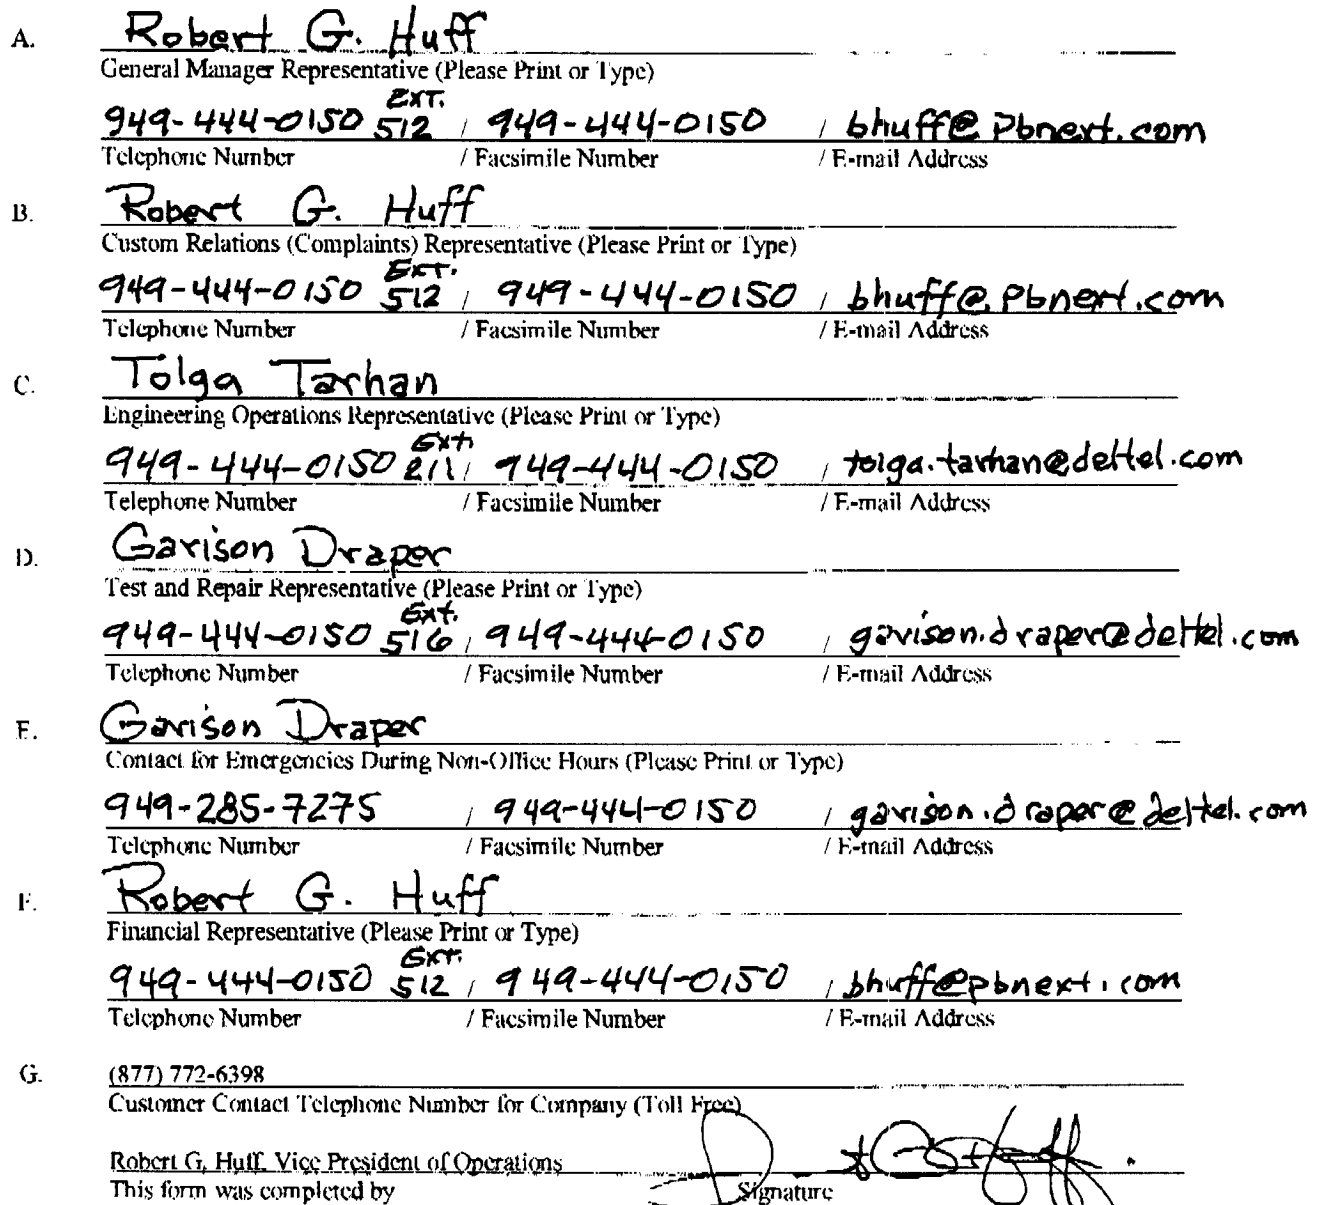 A. Robert G. Huff
General Manager Representative (Please Print or Type)
949-444-0150 Ext. 512 / 949-444-0150 / bhuff@pbnext.com
Telephone Number / Facsimile Number / E-mail Address
B. Robert G. Huff
Custom Relations (Complaints) Representative (Please Print or Type)
949-444-0150 Ext. 512 / 949-444-0150 / bhuff@pbnext.com
Telephone Number / Facsimile Number / E-mail Address
C. Tolga Tarhan
Engineering Operations Representative (Please Print or Type)
949-444-0150 Ext. 211 / 949-444-0150 / tolga.tarhan@deltel.com
Telephone Number / Facsimile Number / E-mail Address
D. Garison Draper
Test and Repair Representative (Please Print or Type)
949-444-0150 Ext. 516 / 949-444-0150 / garison.draper@deltel.com
Telephone Number / Facsimile Number / E-mail Address
E. Garison Draper
Contact for Emergencies During Non-Office Hours (Please Print or Type)
949-285-7275 / 949-444-0150 / garison.draper@deltel.com
Telephone Number / Facsimile Number / E-mail Address
F. Robert G. Huff
Financial Representative (Please Print or Type)
949-444-0150 Ext. 512 / 949-444-0150 / bhuff@pbnext.com
Telephone Number / Facsimile Number / E-mail Address
G. (877) 772-6398
Customer Contact Telephone Number for Company (Toll Free)
Robert G. Huff, Vice President of Operations
This form was completed by Signature